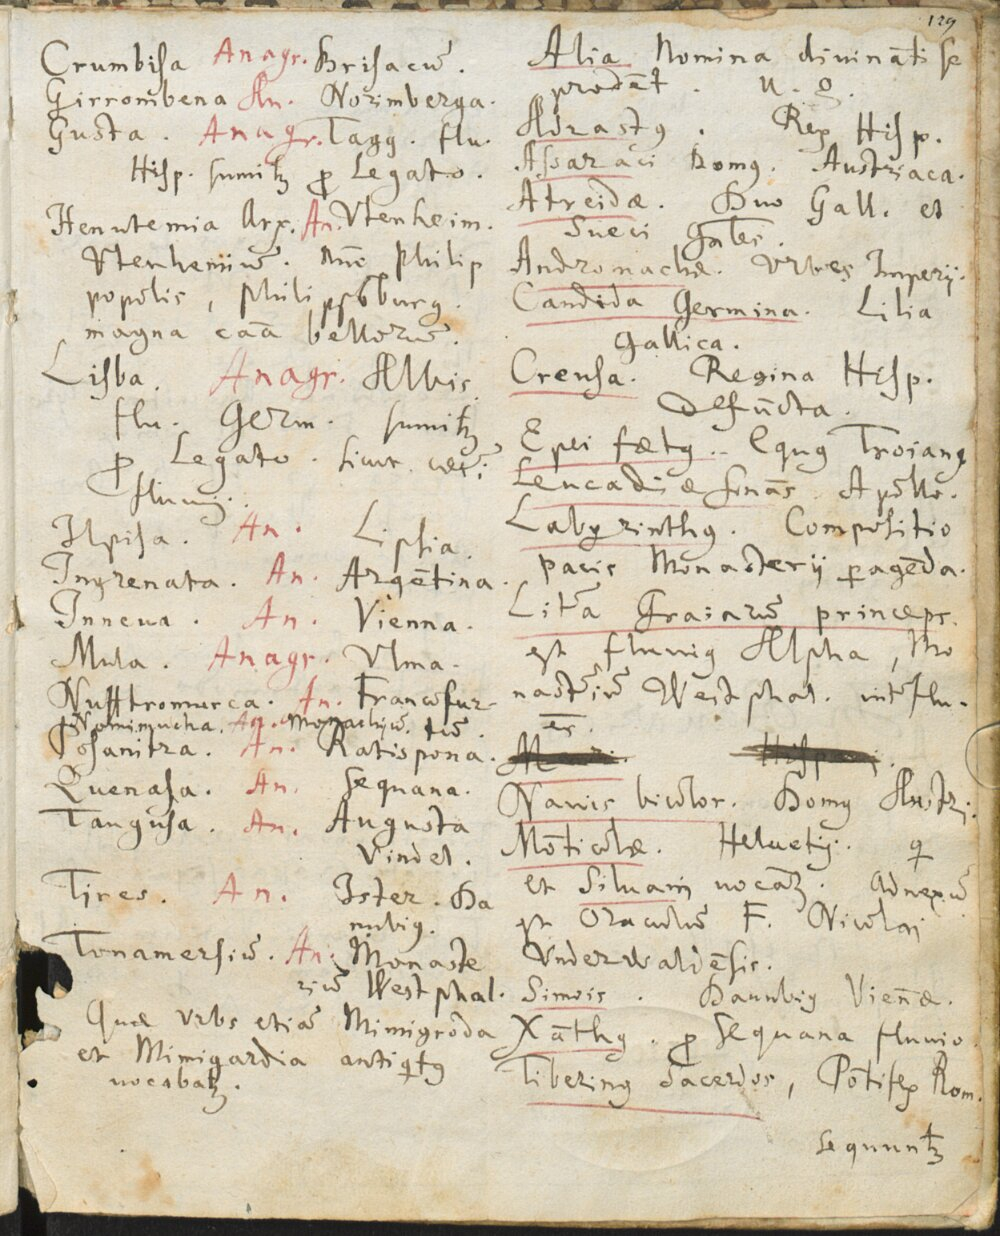 129
Crumbisa Anagr. Brisacū.
Girrombena An. Norimberga.
Gusta. Anagr. Tagg. flu.
Hisp. sumitꝫ ꝓ Legato.
Henutemia Arx. An. Vtenheim.
Vtenhemiū. nūc Philip
popolis, Philippsburg.
magna caā bellorū.
Lisba. Anagr. Albis
flu. Germ. sumitꝫ
ꝓ Legato.
fluuij.
Ilpisa. An. Lipsia.
Ingrenata. An. Argētina.
Inneua. An. Vienna.
Mula. Anagr. Vlma.
Nufftromurca. An. Francofur-
tū.
Nomimucha. An. Monachiū.
Posanitra. An. Ratispona.
Quenasa. An. Sequana.
Tangusa. An. Augusta
Vindel.
Tires. An. Ister. Da
nubiꝰ.
Tonamersiū. An. Monaste
riū Westphal.
Quæ Vrbs etiā Mimigroda
et Mimigardia antiqꝫtꝰ
uocabatꝫ.
Alia Nomina diuināti se
prodēt. u. g.
Adrastꝰ. Rex Hisp.
Assaraci Domꝰ. Austriaca.
Atreidæ. Duo Gall. et
Sueci Gabēs.
Andromachæ. Vrbes Imperij.
Candida Germina. Lilia
Gallica.
Creusa. Regina Hisp.
defūcta.
Epei fætꝰ. Equꝰ Troianꝰ
Leucadiæ sonās. Apollo.
Labyrinthꝰ. Compositio
pacis Monasterij ꝑagēda.
Litēa Graiarū princeps.
est fluuiꝰ Alpha, Mo
nastēiū Westphal. intēflu-
ēs.
Nauis bicolor. Domꝰ Austr.
Mōticolæ. Heluetij. q̄
et Siluani uocātꝫ. Adnexū
est Oraculū F. Nicolai
Vnderwaldēsis.
Simois. Danubiꝰ Vieñæ.
Xāthꝰ. ꝓ Sequana fluuio.
Tiberinꝰ Sacerdos, Pōtifex Rom.
sequuntꝫ